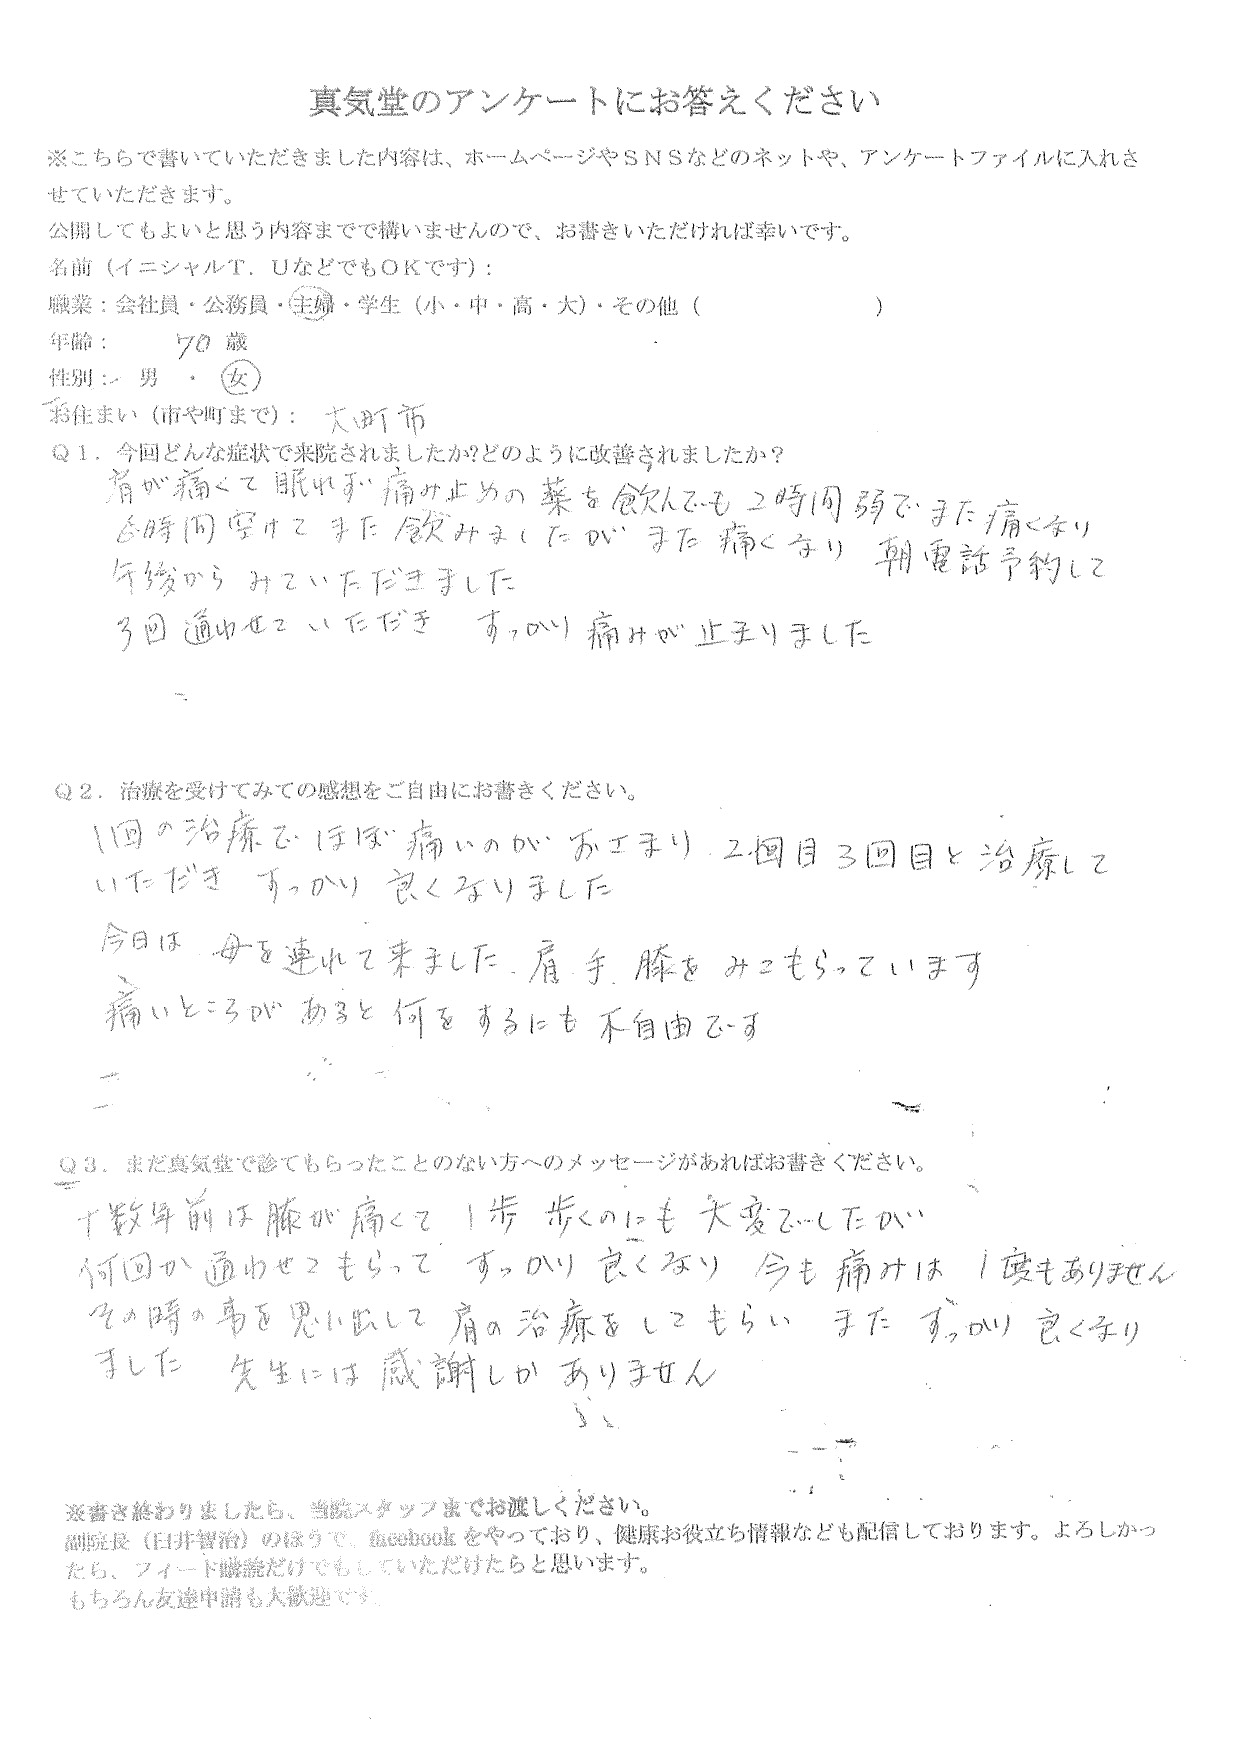 真気堂のアンケートにお答えください
※こちらで書いていただきました内容は、ホームページやＳＮＳなどのネットや、アンケートファイルに入れさ
せていただきます。
公開してもよいと思う内容までで構いませんので、お書きいただければ幸いです。
名前（イニシャルＴ．ＵなどでもＯＫです）：
職業：会社員・公務員・主婦・学生（小・中・高・大）・その他（　　　　　　　　）
年齢：　　70 歳
性別：　男　・　女
お住まい（市や町まで）：　大町市
Ｑ１．今回どんな症状で来院されましたか?どのように改善されましたか？
肩が痛くて眠れず 痛み止めの薬を飲んでも 2時間弱でまた痛くなり
6時間空けてまた飲みましたがまた痛くなり 朝電話予約して
午後からみていただきました
3回通わせていただき すっかり痛みが止まりました
Ｑ２．治療を受けてみての感想をご自由にお書きください。
1回の治療でほぼ痛いのがおさまり 2回目3回目と治療して
いただき すっかり良くなりました
今日は 母を連れて来ました 肩 手 膝をみてもらっています
痛いところがあると何をするにも不自由です
Ｑ３．まだ真気堂で診てもらったことのない方へのメッセージがあればお書きください。
十数年前は膝が痛くて 1歩 歩くのにも 大変でしたが
何回か通わせてもらって すっかり良くなり 今も痛みは 1度もありません
その時の事を思い出して 肩の治療をしてもらい また すっかり良くなり
ました 先生には感謝しかありません
※書き終わりましたら、当院スタッフまでお渡しください。
副院長（臼井智治）のほうで、facebook をやっており、健康お役立ち情報なども配信しております。よろしかっ
たら、フィード購読だけでもしていただけたらと思います。
もちろん友達申請も大歓迎です。